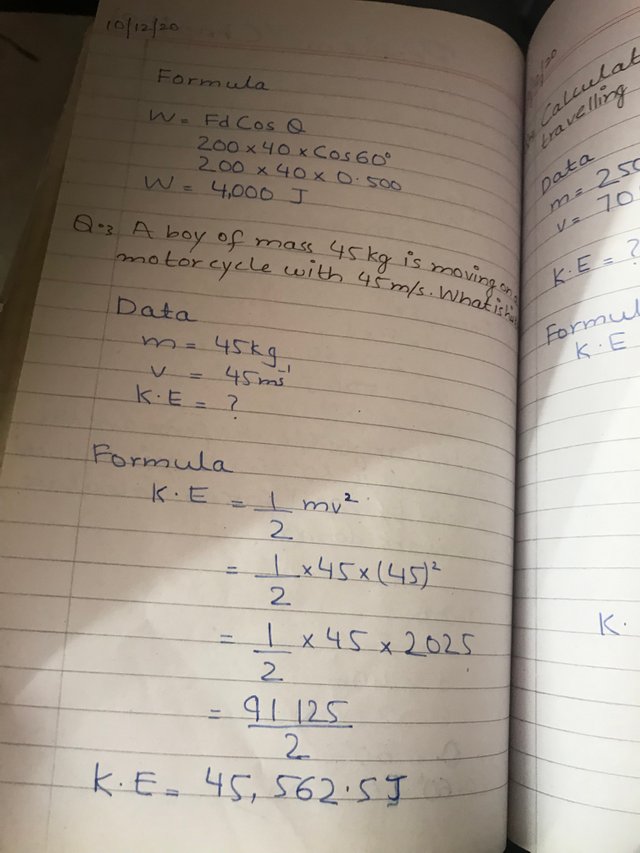 10/12/20
Formula
W = Fd Cos Q
200 × 40 × Cos 60°
200 × 40 × 0.500
W = 4,000 J
Q.3 A boy of mass 45kg is moving on
motorcycle with 45m/s. What is
Data
m = 45kg
v = 45ms⁻¹
K.E = ?
Formula
K.E = 1/2 mv²
= 1/2 × 45 × (45)²
= 1/2 × 45 × 2025
= 91125/2
K.E = 45,562.5J
/20
Calculat
travelling
Data
m = 250
v = 70
K.E = ?
Formul
K.E
K.